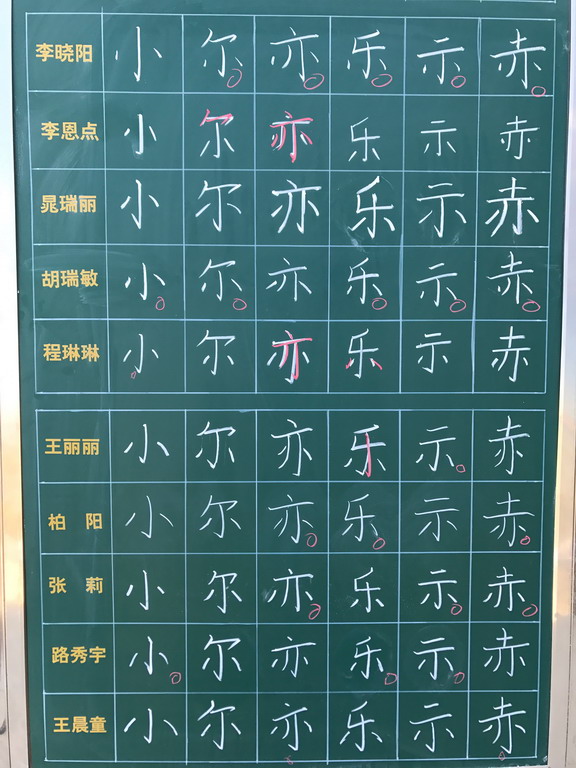 李晓阳 小 尔 亦 乐 示 赤
李恩点 小 尔 亦 乐 示 赤
晁瑞丽 小 尔 亦 乐 示 赤
胡瑞敏 小 尔 亦 乐 示 赤
程琳琳 小 尔 亦 乐 示 赤
王丽丽 小 尔 亦 乐 示 赤
柏 阳 小 尔 亦 乐 示 赤
张 莉 小 尔 亦 乐 示 赤
路秀宇 小 尔 亦 乐 示 赤
王晨童 小 尔 亦 乐 示 赤